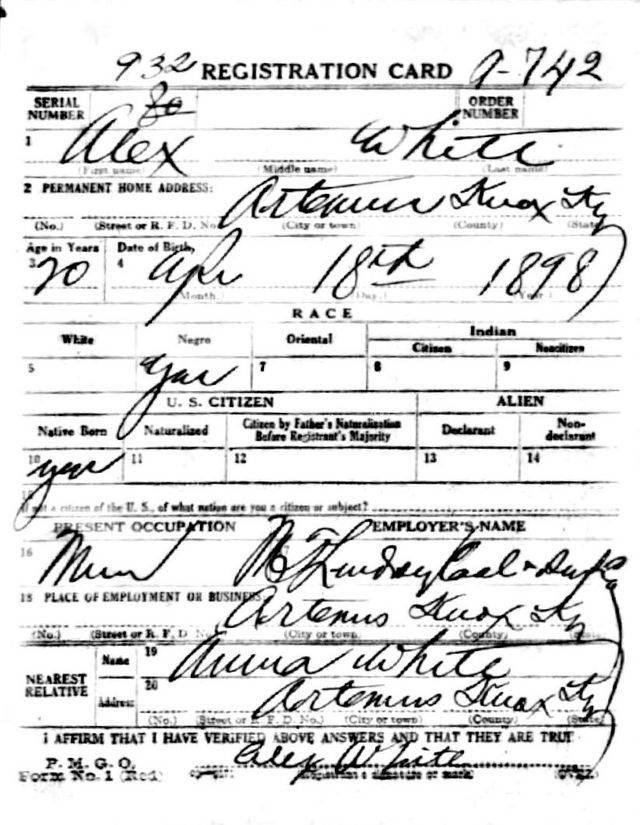 932 REGISTRATION CARD A-742
SERIAL NUMBER ORDER NUMBER
1 Alex White
(First name) (Middle name) (Last name)
2 PERMANENT HOME ADDRESS:
Artemus Knox Ky
(No.) (Street or R. F. D. No.) (City or town) (County) (State)
Age in Years Date of Birth,
3 20 4 Apr 18th 1898
(Month.) (Day.) (Year)
RACE
White Negro Oriental Indian
Citizen Noncitizen
5 Yes 7 8 9
U. S. CITIZEN ALIEN
Native Born Naturalized Citizen by Father's Naturalization Before Registrant's Majority Declarant Non-declarant
10 yes 11 12 13 14
If not a citizen of the U. S., of what nation are you a citizen or subject?
PRESENT OCCUPATION EMPLOYER'S NAME
16 17 Lindsay Coal
18 PLACE OF EMPLOYMENT OR BUSINESS:
Artemus Knox Ky
(No.) (Street or R. F. D. No.) (City or town) (County) (State)
NEAREST RELATIVE
Name 19 Anna White
Address 20 Artemus Knox Ky
(No.) (Street or R. F. D. No.) (City or town) (County) (State)
I AFFIRM THAT I HAVE VERIFIED ABOVE ANSWERS AND THAT THEY ARE TRUE
P. M. G. O.
Form No. 1 (Red) Alex White
(Registrant's signature or mark) (OVER)